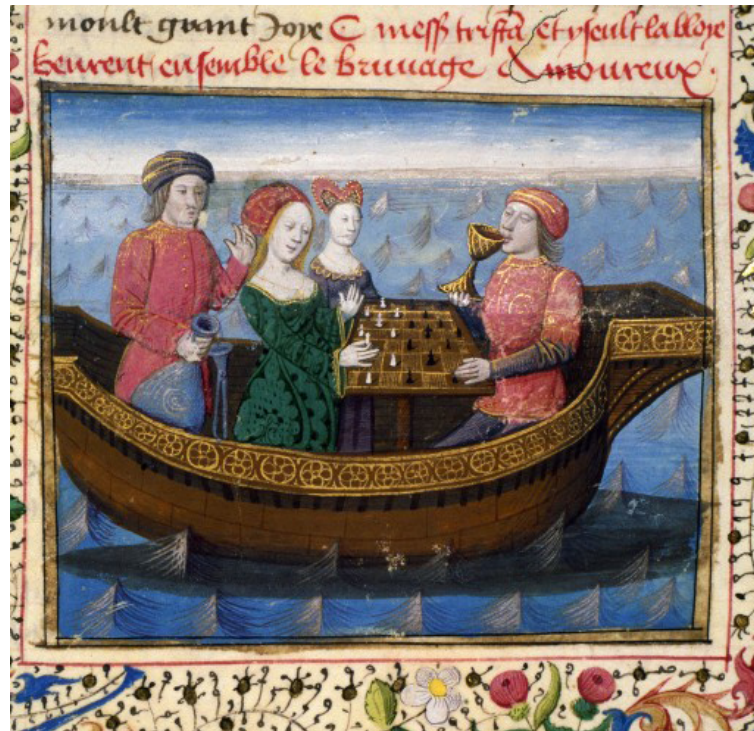 moult grant Joye C mess tristā et yseult la bloye
beurent ensemble le bruuage amoureux.